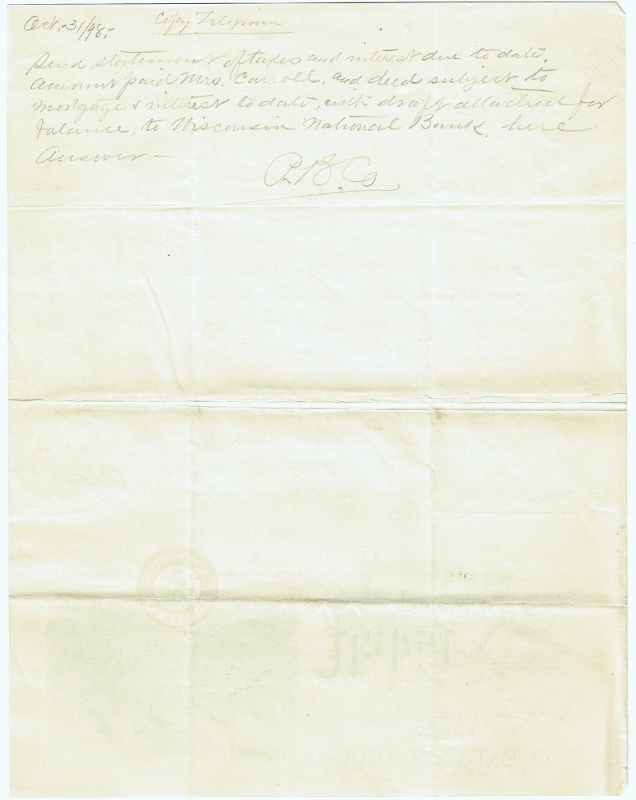 Oct.-31/98.- Copy Telegram
Send statement of taxes and interest due to date,
amount paid Mrs. Carroll, and deed subject to
mortgage & interest to date, with draft attached for
balance, to Wisconsin National Bank, here
Answer.-
P. B. Co